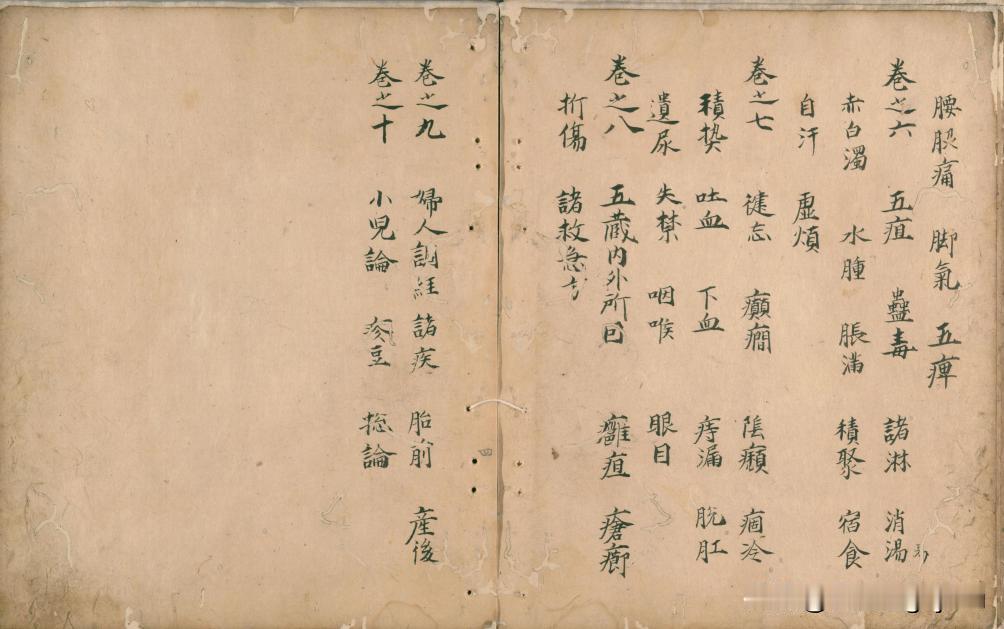 腰股痛 脚氣 五痺
卷之六 五疸 蠱毒 諸淋 消渴
赤白濁 水腫 脹滿 積聚 宿食
自汗 虚煩
卷之七 健忘 癲癇 陰㿗 痼冷
積熱 吐血 下血 痔漏 脱肛
遺尿 失禁 咽喉 眼目
卷之八 五蔵内外所因 癰疽 瘡癤
折傷 諸救急方
卷之九 婦人調経 諸疾 胎前 産後
卷之十 小兒論 疹豆 捴論
四